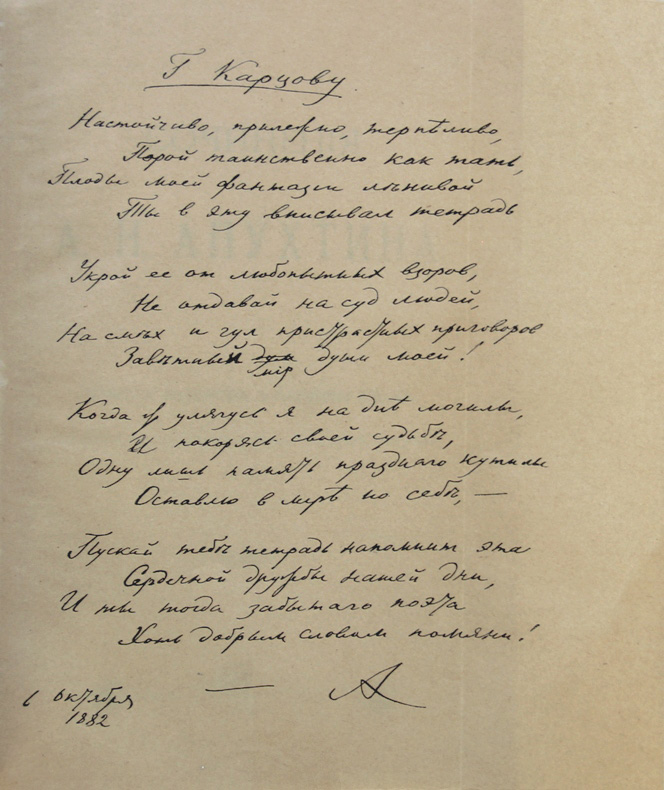 Г. Карцову.
Настойчиво, прилежно, терпѣливо,
Порой таинственно как тать,
Плоды моей фантазіи лѣнивой
Ты в эту вписывал тетрадь
Укрой ее от любопытных взоров,
Не отдавай на суд людей,
На смѣх и гул пристрастных приговоров
Завѣтный души моей!
мір
Когда ж улягусь я на днѣ могилы,
И покорясь своей судьбѣ,
Одну лишь память празднаго кутилы
Оставлю в мірѣ по себѣ, —
Пускай тебѣ тетрадь напомнит эта
Сердечной дружбы нашей дни,
И ты тогда забытаго поэта
Хоть добрым словом помяни!
— А
6 Октября
1882